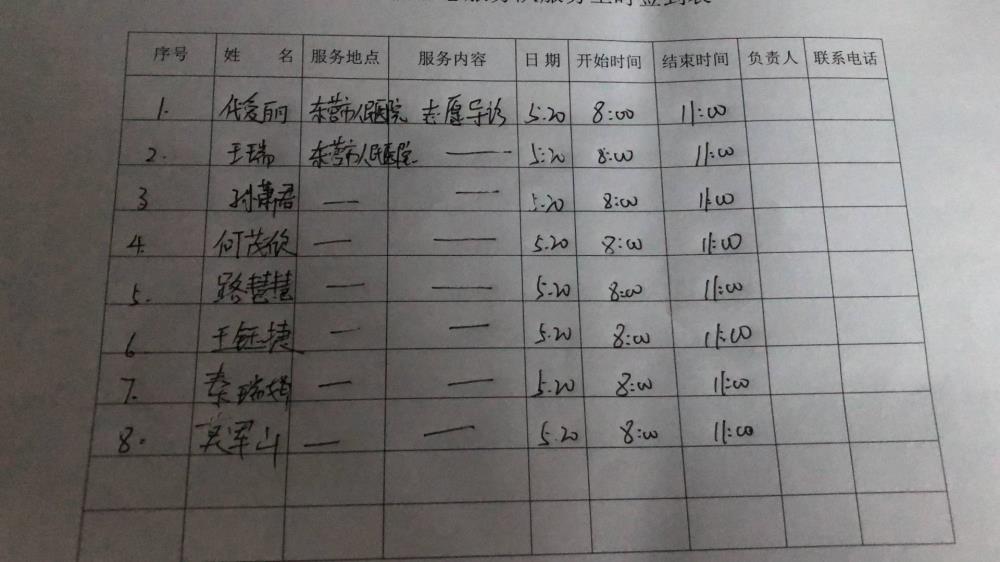 服务队服务工时签到表
序号 姓 名 服务地点 服务内容 日期 开始时间 结束时间 负责人 联系电话
1. 代爱丽 东营市人民医院 志愿导诊 5.20 8:00 11:00
2. 王瑞 东营市人民医院 —— 5:20 8:00 11:00
3 孙萧君 — — 5.20 8:00 11:00
4. 何茂欣 — —— 5.20 8:00 11:00
5. 路慧慧 — —— 5.20 8:00 11:00
6 王钰捷 — — 5.20 8:00 11:00
7. 秦瑞 — — 5.20 8:00 11:00
8. 军山 — — 5.20 8:00 11:00